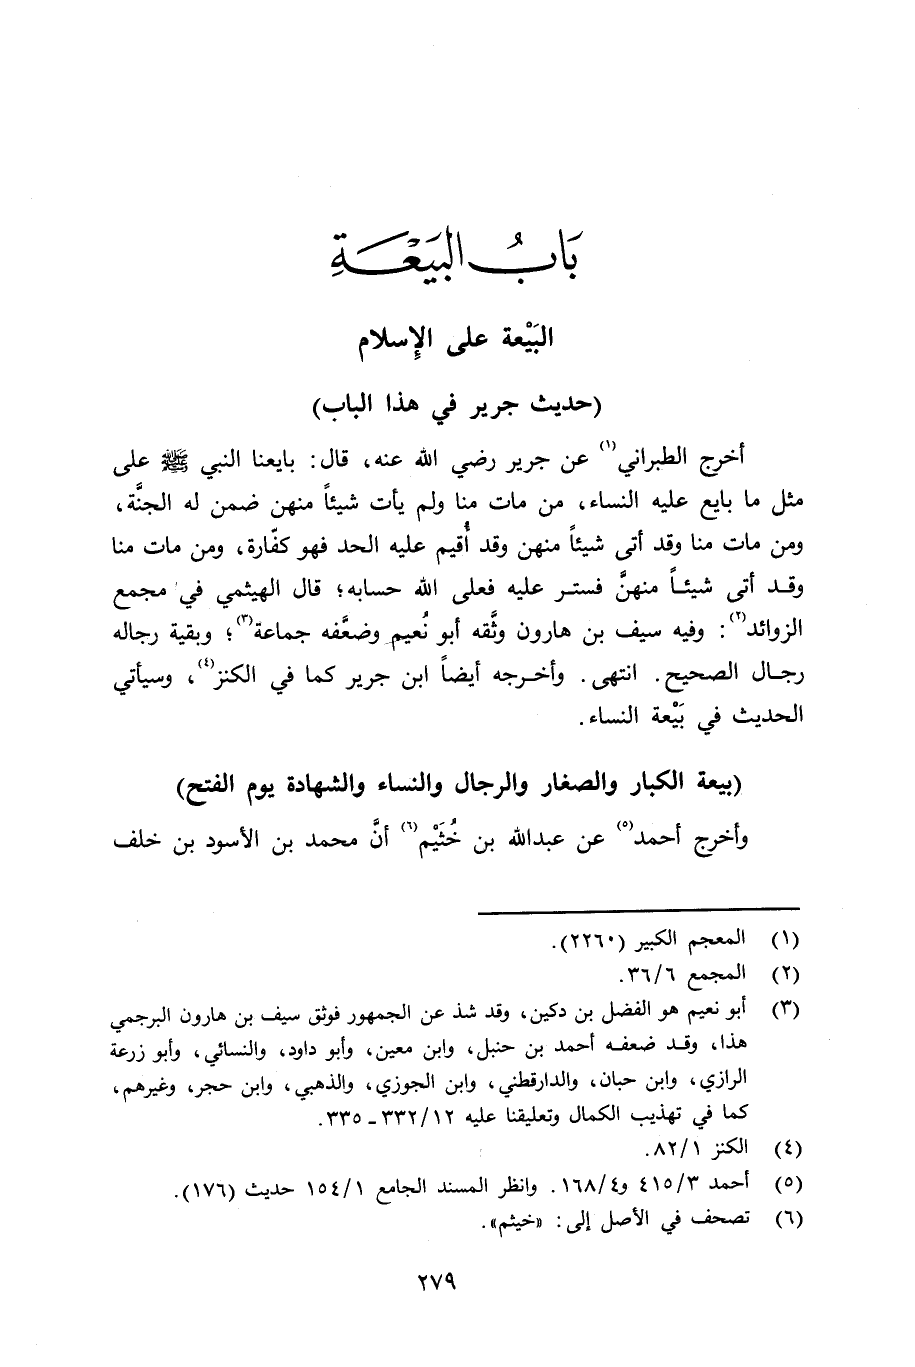 بَابُ البَيْعَةِ
البَيْعة على الإسلام
(حديث جرير في هذا الباب)
أخرج الطبراني(١) عن جرير رضي الله عنه، قال: بايعنا النبي ﷺ على
مثل ما بايع عليه النساء، من مات منا ولم يأت شيئاً منهن ضمن له الجنَّة،
ومن مات منا وقد أتى شيئاً منهن وقد أُقيم عليه الحد فهو كفّارة، ومن مات منا
وقد أتى شيئاً منهنَّ فستر عليه فعلى الله حسابه؛ قال الهيثمي في مجمع
الزوائد(٢): وفيه سيف بن هارون وثَّقه أبو نُعيم وضعَّفه جماعة(٣)؛ وبقية رجاله
رجال الصحيح. انتهى. وأخرجه أيضاً ابن جرير كما في الكنز(٤)، وسيأتي
الحديث في بَيْعة النساء.
(بيعة الكبار والصغار والرجال والنساء والشهادة يوم الفتح)
وأخرج أحمد(٥) عن عبدالله بن خُثَيْم(٦) أنَّ محمد بن الأسود بن خلف
(١) المعجم الكبير (٢٢٦٠).
(٢) المجمع ٣٦/٦.
(٣) أبو نعيم هو الفضل بن دكين، وقد شذ عن الجمهور فوثق سيف بن هارون البرجمي
هذا، وقد ضعفه أحمد بن حنبل، وابن معين، وأبو داود، والنسائي، وأبو زرعة
الرازي، وابن حبان، والدارقطني، وابن الجوزي، والذهبي، وابن حجر، وغيرهم،
كما في تهذيب الكمال وتعليقنا عليه ٣٣٢/١٢ ـ ٣٣٥.
(٤) الكنز ٨٢/١.
(٥) أحمد ٤١٥/٣ و١٦٨/٤. وانظر المسند الجامع ١٥٤/١ حديث (١٧٦).
(٦) تصحف في الأصل إلى: «خيثم».
٢٧٩